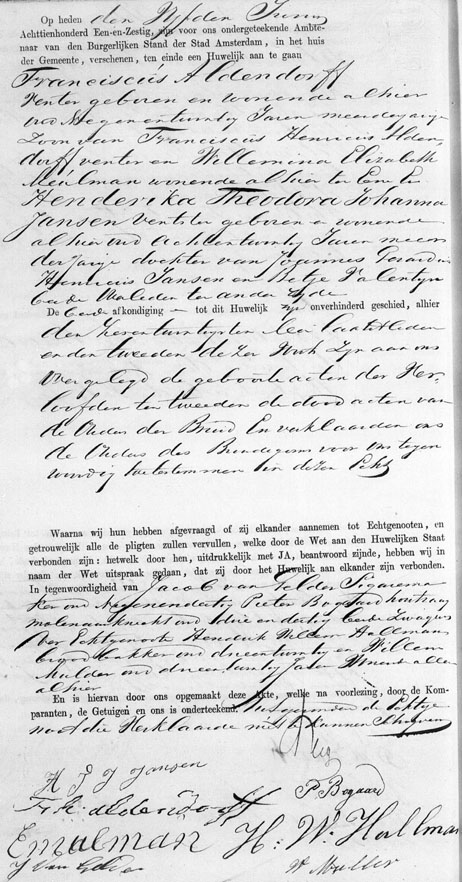 Op heden den Vyfden Juny
Achttienhonderd Een-en-Zestig, zijn voor ons ondergeteekende Ambte-
naar van den Burgerlijken Stand der Stad Amsterdam, in het huis
der Gemeente, verschenen, ten einde een Huwelijk aan te gaan
Franciscus Aldendorff
venter geboren en wonende alhier
oud Negenentwintig Jaren meerderjarige
Zoon van Franciscus Henricus Alden
dorff venter en Willemina Elizabeth
Meulman wonende alhier ter Eene En
Henderika Theodora Johanna
Jansen ventster geboren en wonende
alhier oud achtentwintig Jaren meer
derjarige dochter van Joannes Gerardus
Henricus Jansen en Betje Valentyn
beide Overleden ter andere Zyde
De beide afkondigingen tot dit Huwelijk zyn onverhinderd geschied, alhier
den Zesentwintigsten Mei laatstleden
en den tweeden dezer Ook Zyn aan ons
overgelegd de geboorte acten der Ver
loofden ten tweeden de dood acten van
de Ouders der Bruid En verklaarden ons
de Ouders des Bruidegoms voor ons tegen
woordig toetestemmen in dezen Echt
Waarna wij hun hebben afgevraagd of zij elkander aannemen tot Echtgenooten, en
getrouwelijk alle de pligten zullen vervullen, welke door de Wet aan den Huwelijken Staat
verbonden zijn: hetwelk door hen, uitdrukkelijk met JA, beantwoord zijnde, hebben wij in
naam der Wet uitspraak gedaan, dat zij door het Huwelijk aan elkander zijn verbonden.
In tegenwoordigheid van Jacob van Gelder Sigarenma
ker oud Negenendertig Pieter Bogaard houtzaag
molenaarsknecht oud drie en dertig beide Zwagers
der Echtgenoote Hendrik Willem Hallmann
brood bakker oud drieentwintig en Willem
Mulder oud drieentwintig Jaren allen
alhier
En is hiervan door ons opgemaakt deze Akte, welke na voorlezing, door de Kom-
paranten, de Getuigen en ons is onderteekend, uitgezonderd de Echtge
noot die Verklaarde niet te kunnen Schryven
H J J Jansen
P Bogaard
F H Aldendorff
E Mulman H. W. Hallman
J van Gelder W Mulder